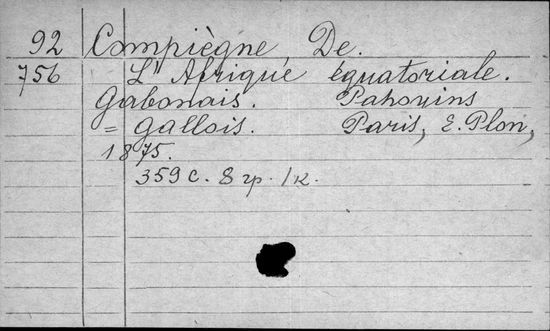 92 Compiègne, De.
756 L'Afrique équatoriale.
Gabonais. Pahouins
= gallois. Paris, E. Plon,
1875.
359 с. 8 гр. 1 к.